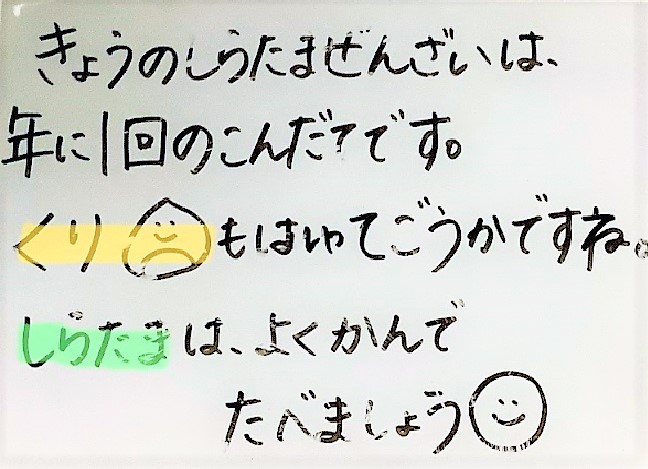 きょうのしらたまぜんざいは、
年に1回のこんだてです。
くりもはいってごうかですね。
しらたまは、よくかんで
たべましょう